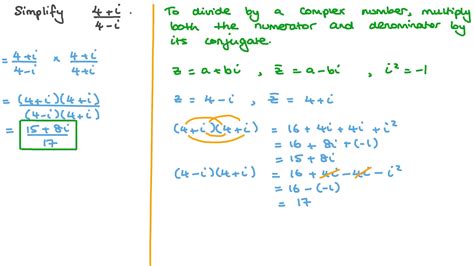 Simplify (4+i)/(4-i).
= (4+i)/(4-i) × (4+i)/(4+i)
= (4+i)(4+i)/(4-i)(4+i)
= (15 + 8i)/17
To divide by a complex number, multiply
both the numerator and denominator by
its conjugate.
z = a+bi , z̄ = a-bi , i² = -1
z = 4-i , z̄ = 4+i
(4+i)(4+i) = 16 + 4i + 4i + i²
= 16 + 8i + (-1)
= 15 + 8i
(4-i)(4+i) = 16 + 4i - 4i - i²
= 16 - (-1)
= 17